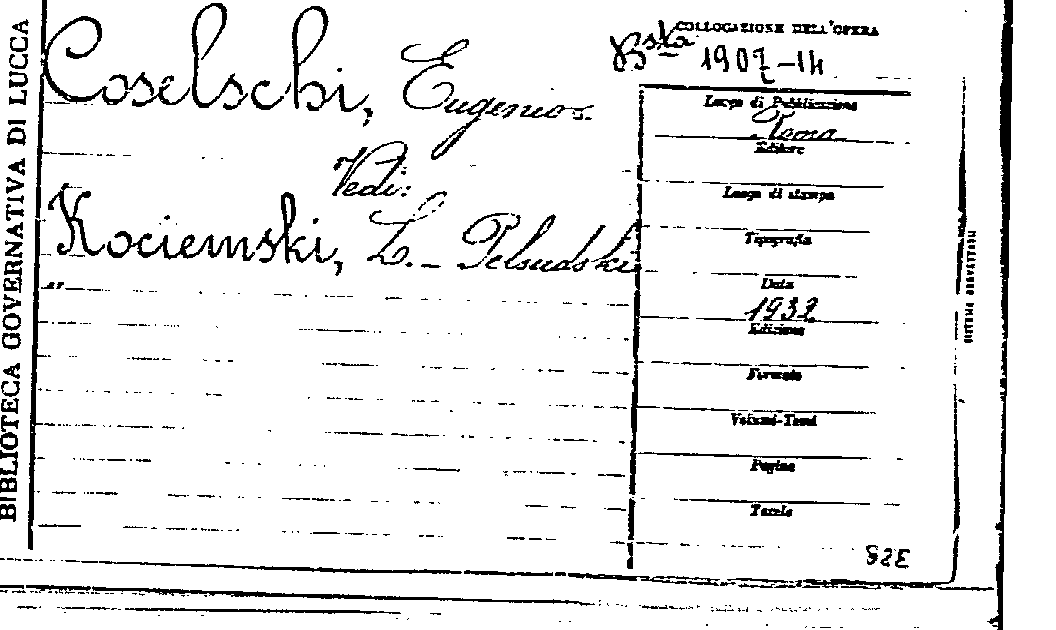 BIBLIOTECA GOVERNATIVA DI LUCCA
Coselschi, Eugenio.
Vedi:
Kociemski, L. - Pelsudski
COLLOCAZIONE DELL'OPERA
Bsta 1907-14
Luogo di Pubblicazione
Roma
Editore
Luogo di stampa
Tipografia
Data
1932
Edizione
Formato
Volumi-Tomi
Pagine
Tavole